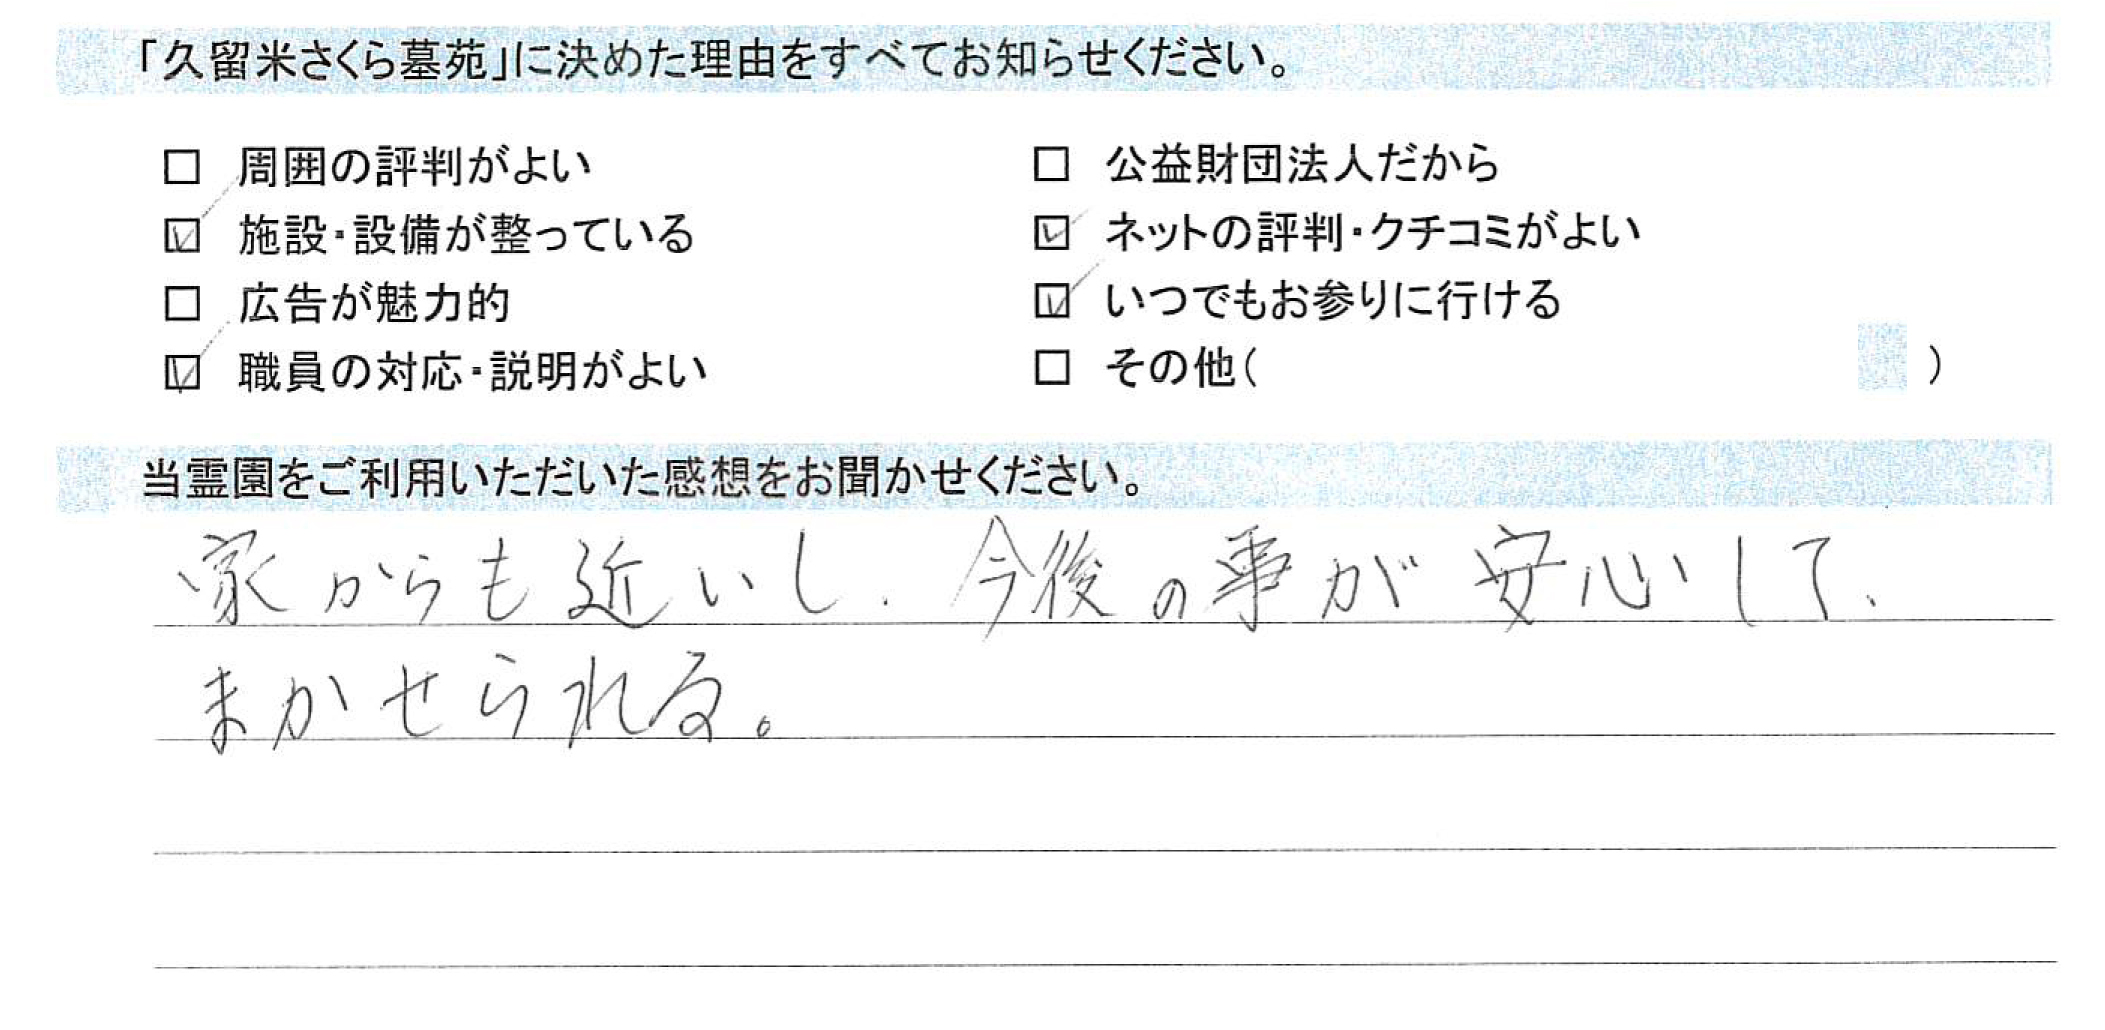 「久留米さくら墓苑」に決めた理由をすべてお知らせください。
□ 周囲の評判がよい
☑ 施設・設備が整っている
□ 広告が魅力的
☑ 職員の対応・説明がよい
□ 公益財団法人だから
☑ ネットの評判・クチコミがよい
☑ いつでもお参りに行ける
□ その他( )
当霊園をご利用いただいた感想をお聞かせください。
家からも近いし、今後の事が安心して、
まかせられる。